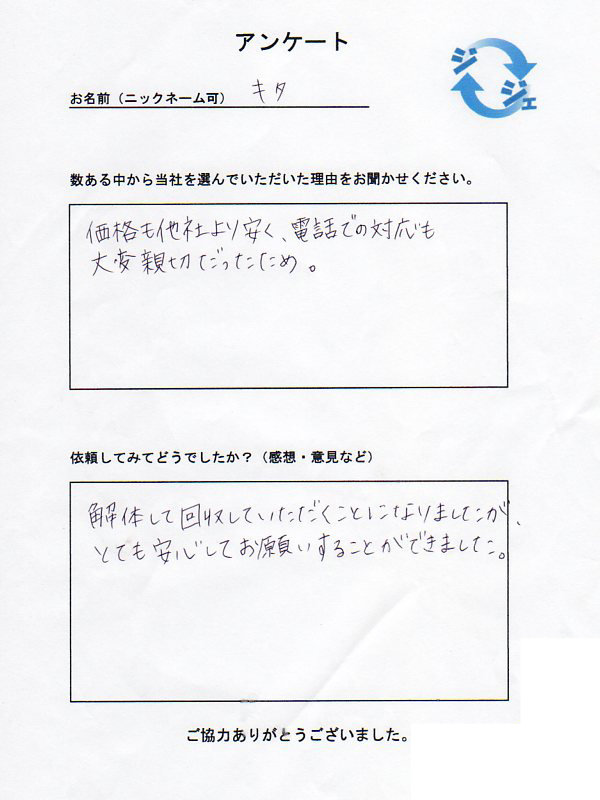 アンケート
ジ
ジェ
お名前（ニックネーム可） キタ
数ある中から当社を選んでいただいた理由をお聞かせください。
価格も他社より安く、電話での対応も
大変親切だったため。
依頼してみてどうでしたか？（感想・意見など）
解体して回収していただくことになりましたが、
とても安心してお願いすることができました。
ご協力ありがとうございました。